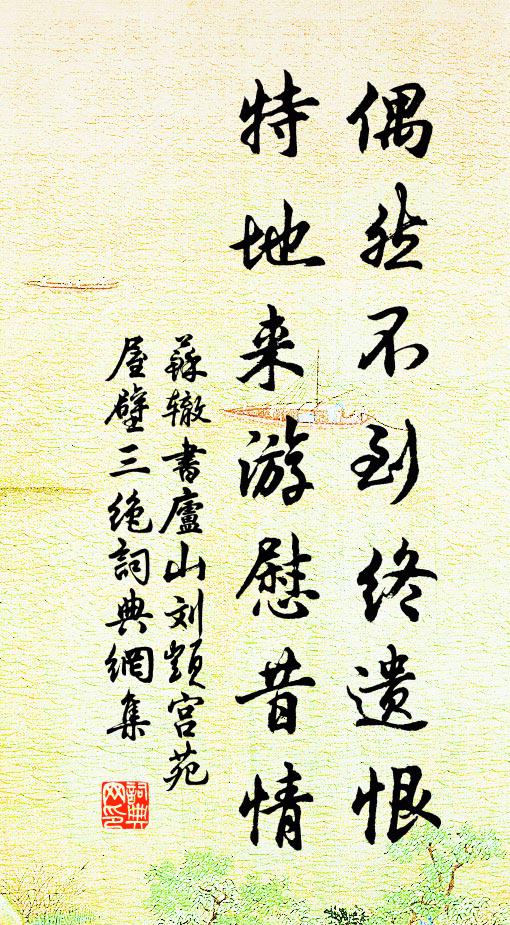 偶然不到终遗恨
特地来游慰昔情
蘇辙書廬山刘顗宫苑
屋壁三绝詞典網集
詞典
网印